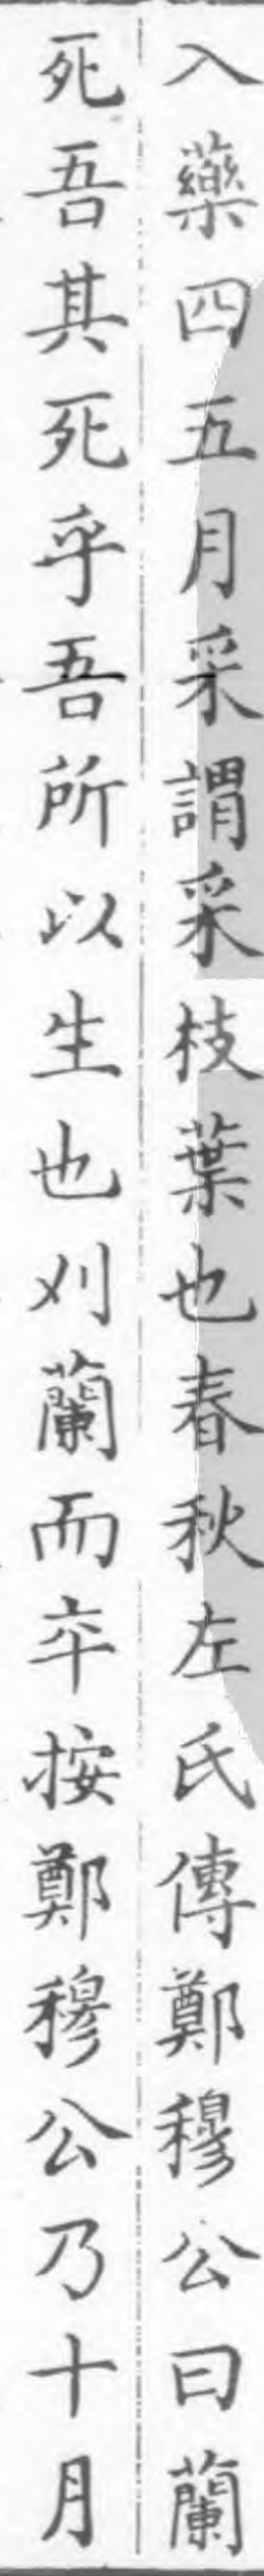 入藥四五月采謂采枝葉也春秋左氏傳鄭穆公曰蘭
死吾其死乎吾所以生也刈蘭而卒按鄭穆公乃十月